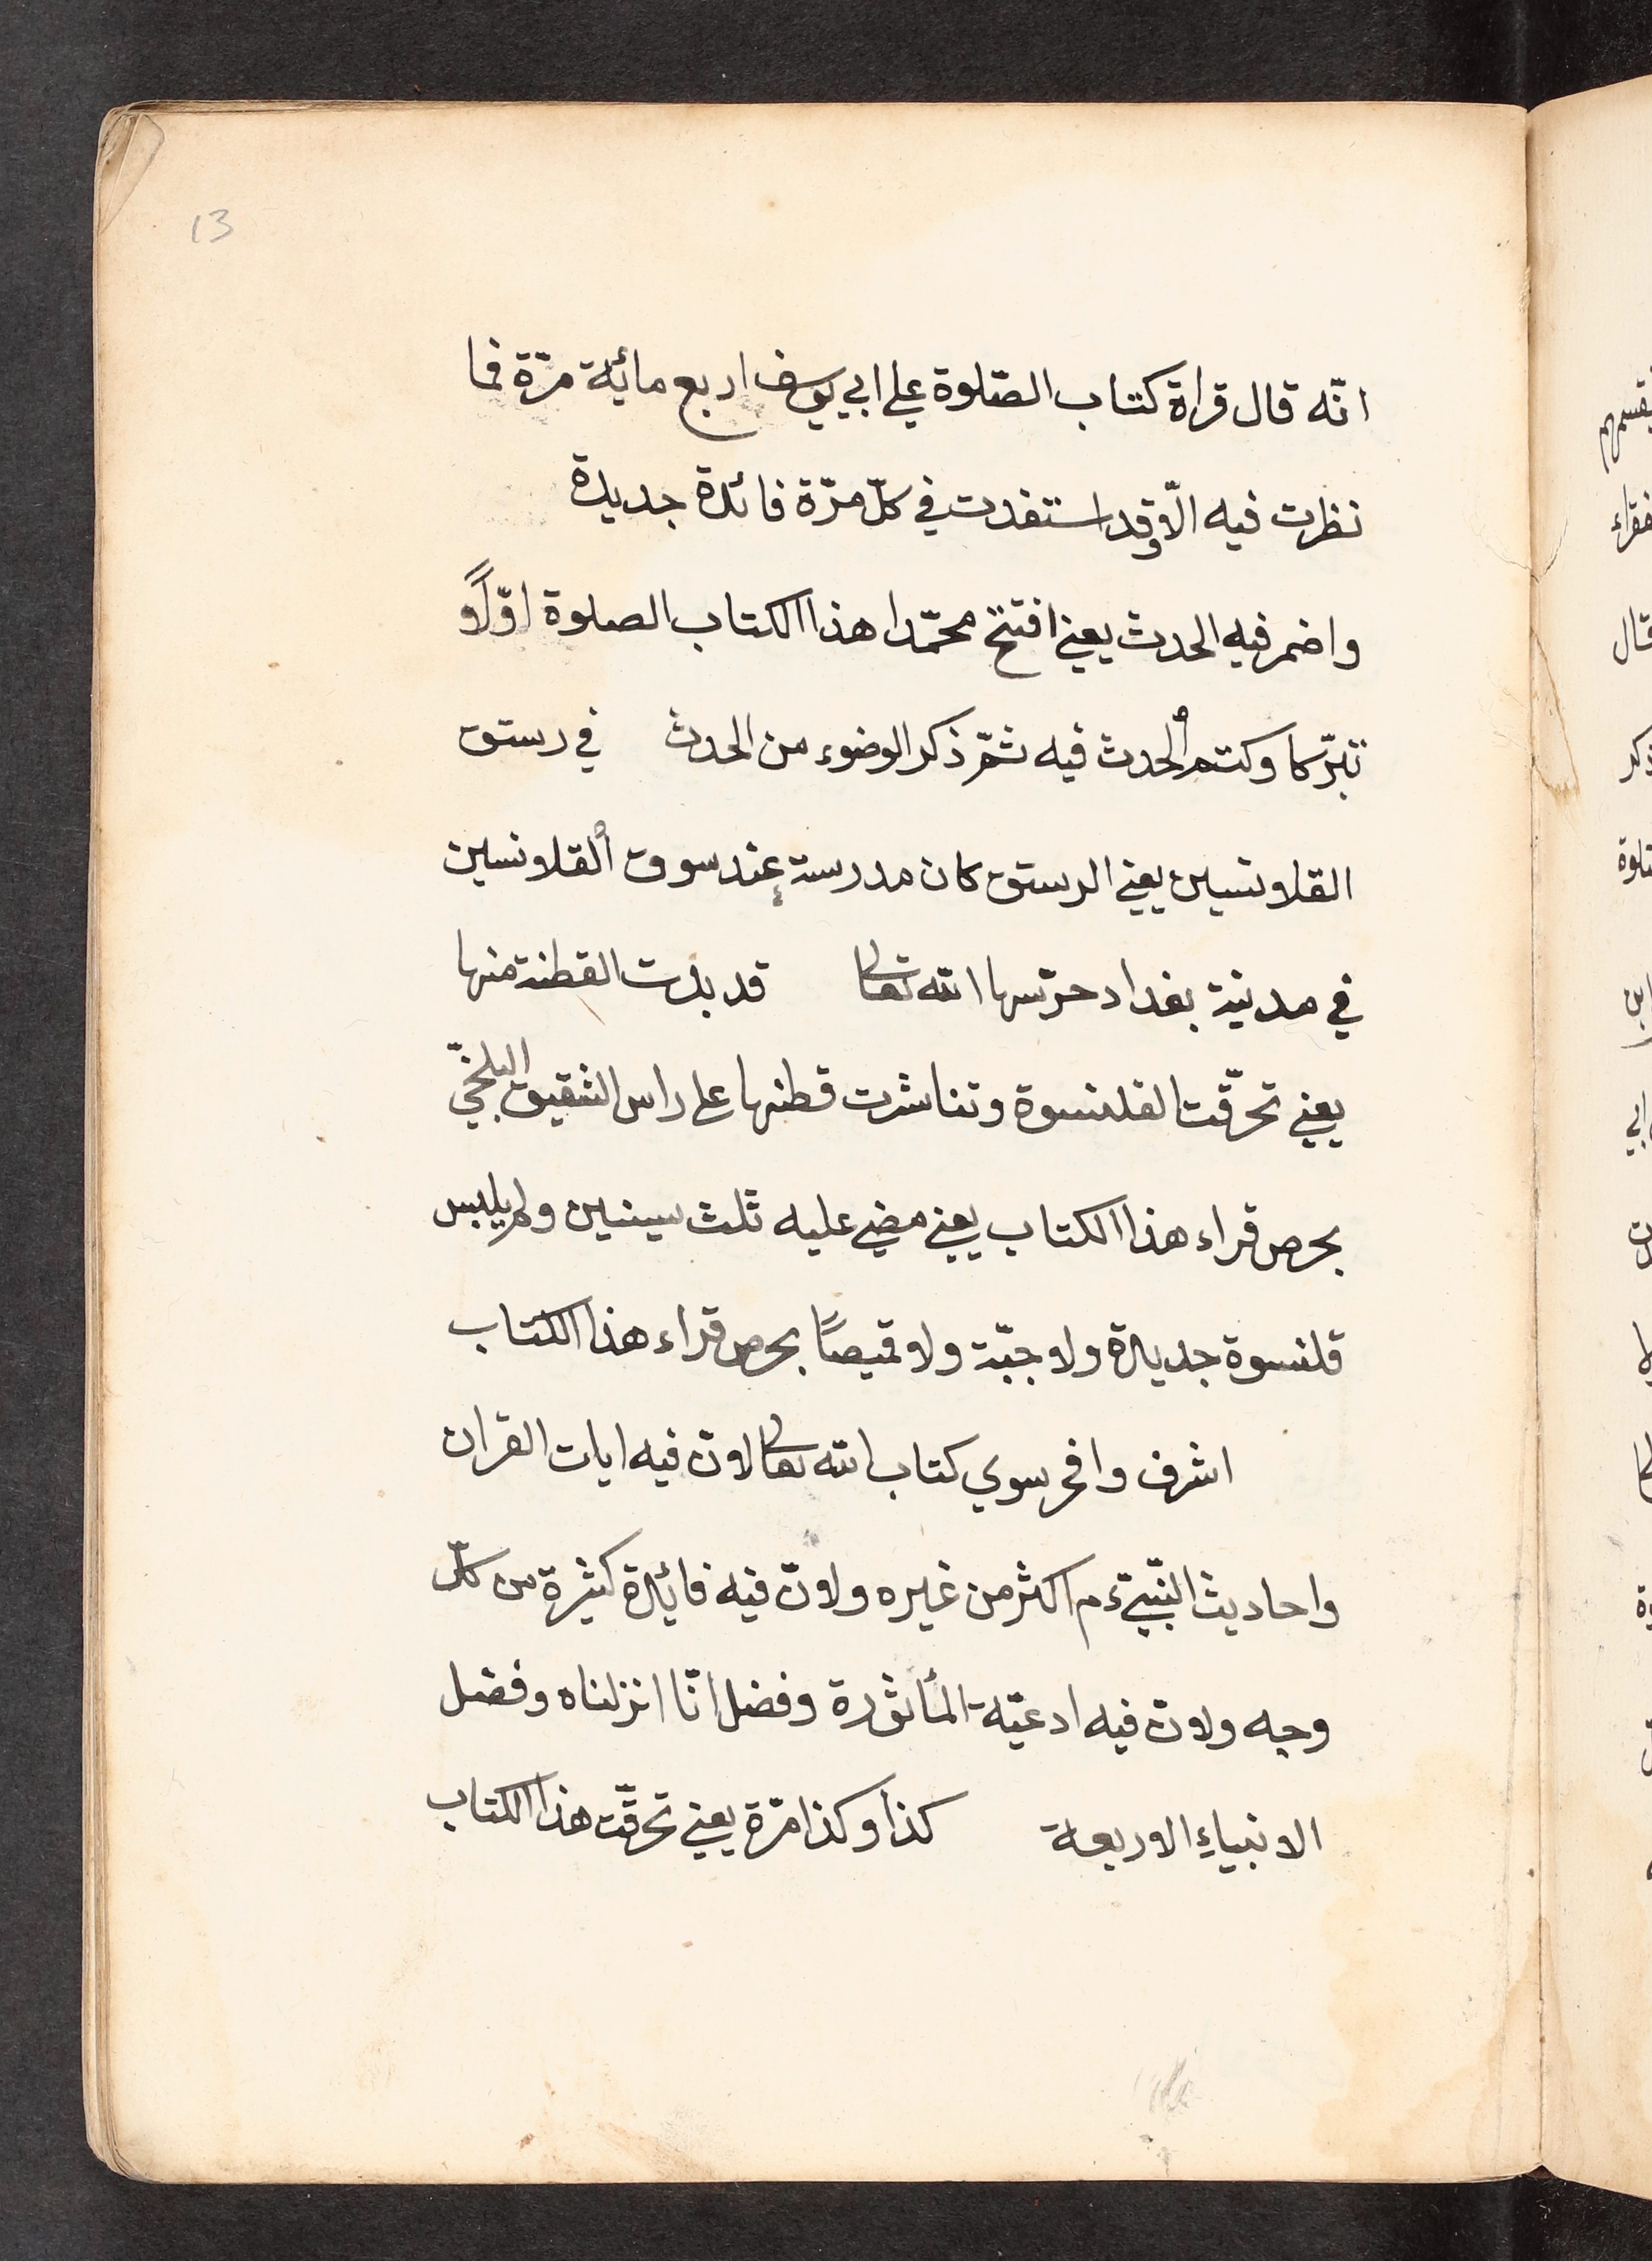 13
انّه قال قراة كتاب الصّلوة علي ابي يوسف اربع مائة مرّة فما
نظرت فيه الّا وقد استفدت في كلّ مرّة فائدة جديدة
واضمر فيه الحدث يعني افتتح محمّدا هذا الكتاب الصلوة اوّلاً و
تبرّكا وكتم الحدث فيه ثمّ ذكر الوضوء من الحدث في رستق
القلانسين يعني الرستق كان مدرسة عند سوق القلانسين
في مدنية بغداد حرّسها الله تعالى قد بدت القطنة منها
يعني تحرّقت القلنسوة وتناشرت قطنها على راس الشقيق البلخيّ
بحرص قراء هذا الكتاب يعني مضي عليه ثلث سينين ولم يلبس
قلنسوة جديدة ولا جبّة ولا قميصًا بحرص قراء هذا الكتاب
اشرف وافخر سوي كتاب الله تعالى لانّ فيه ايات القران
واحاديث النّبيّ ءم اكثر من غيره ولانّ فيه فائدة كثيرة من كلّ
وجه ولانّ فيه ادعيّة المأثورة وفضل انّا انزلناه وفضل
الانبياءِ الاربعة كذا وكذا مرّة يعني تحرقّت هذا الكتاب